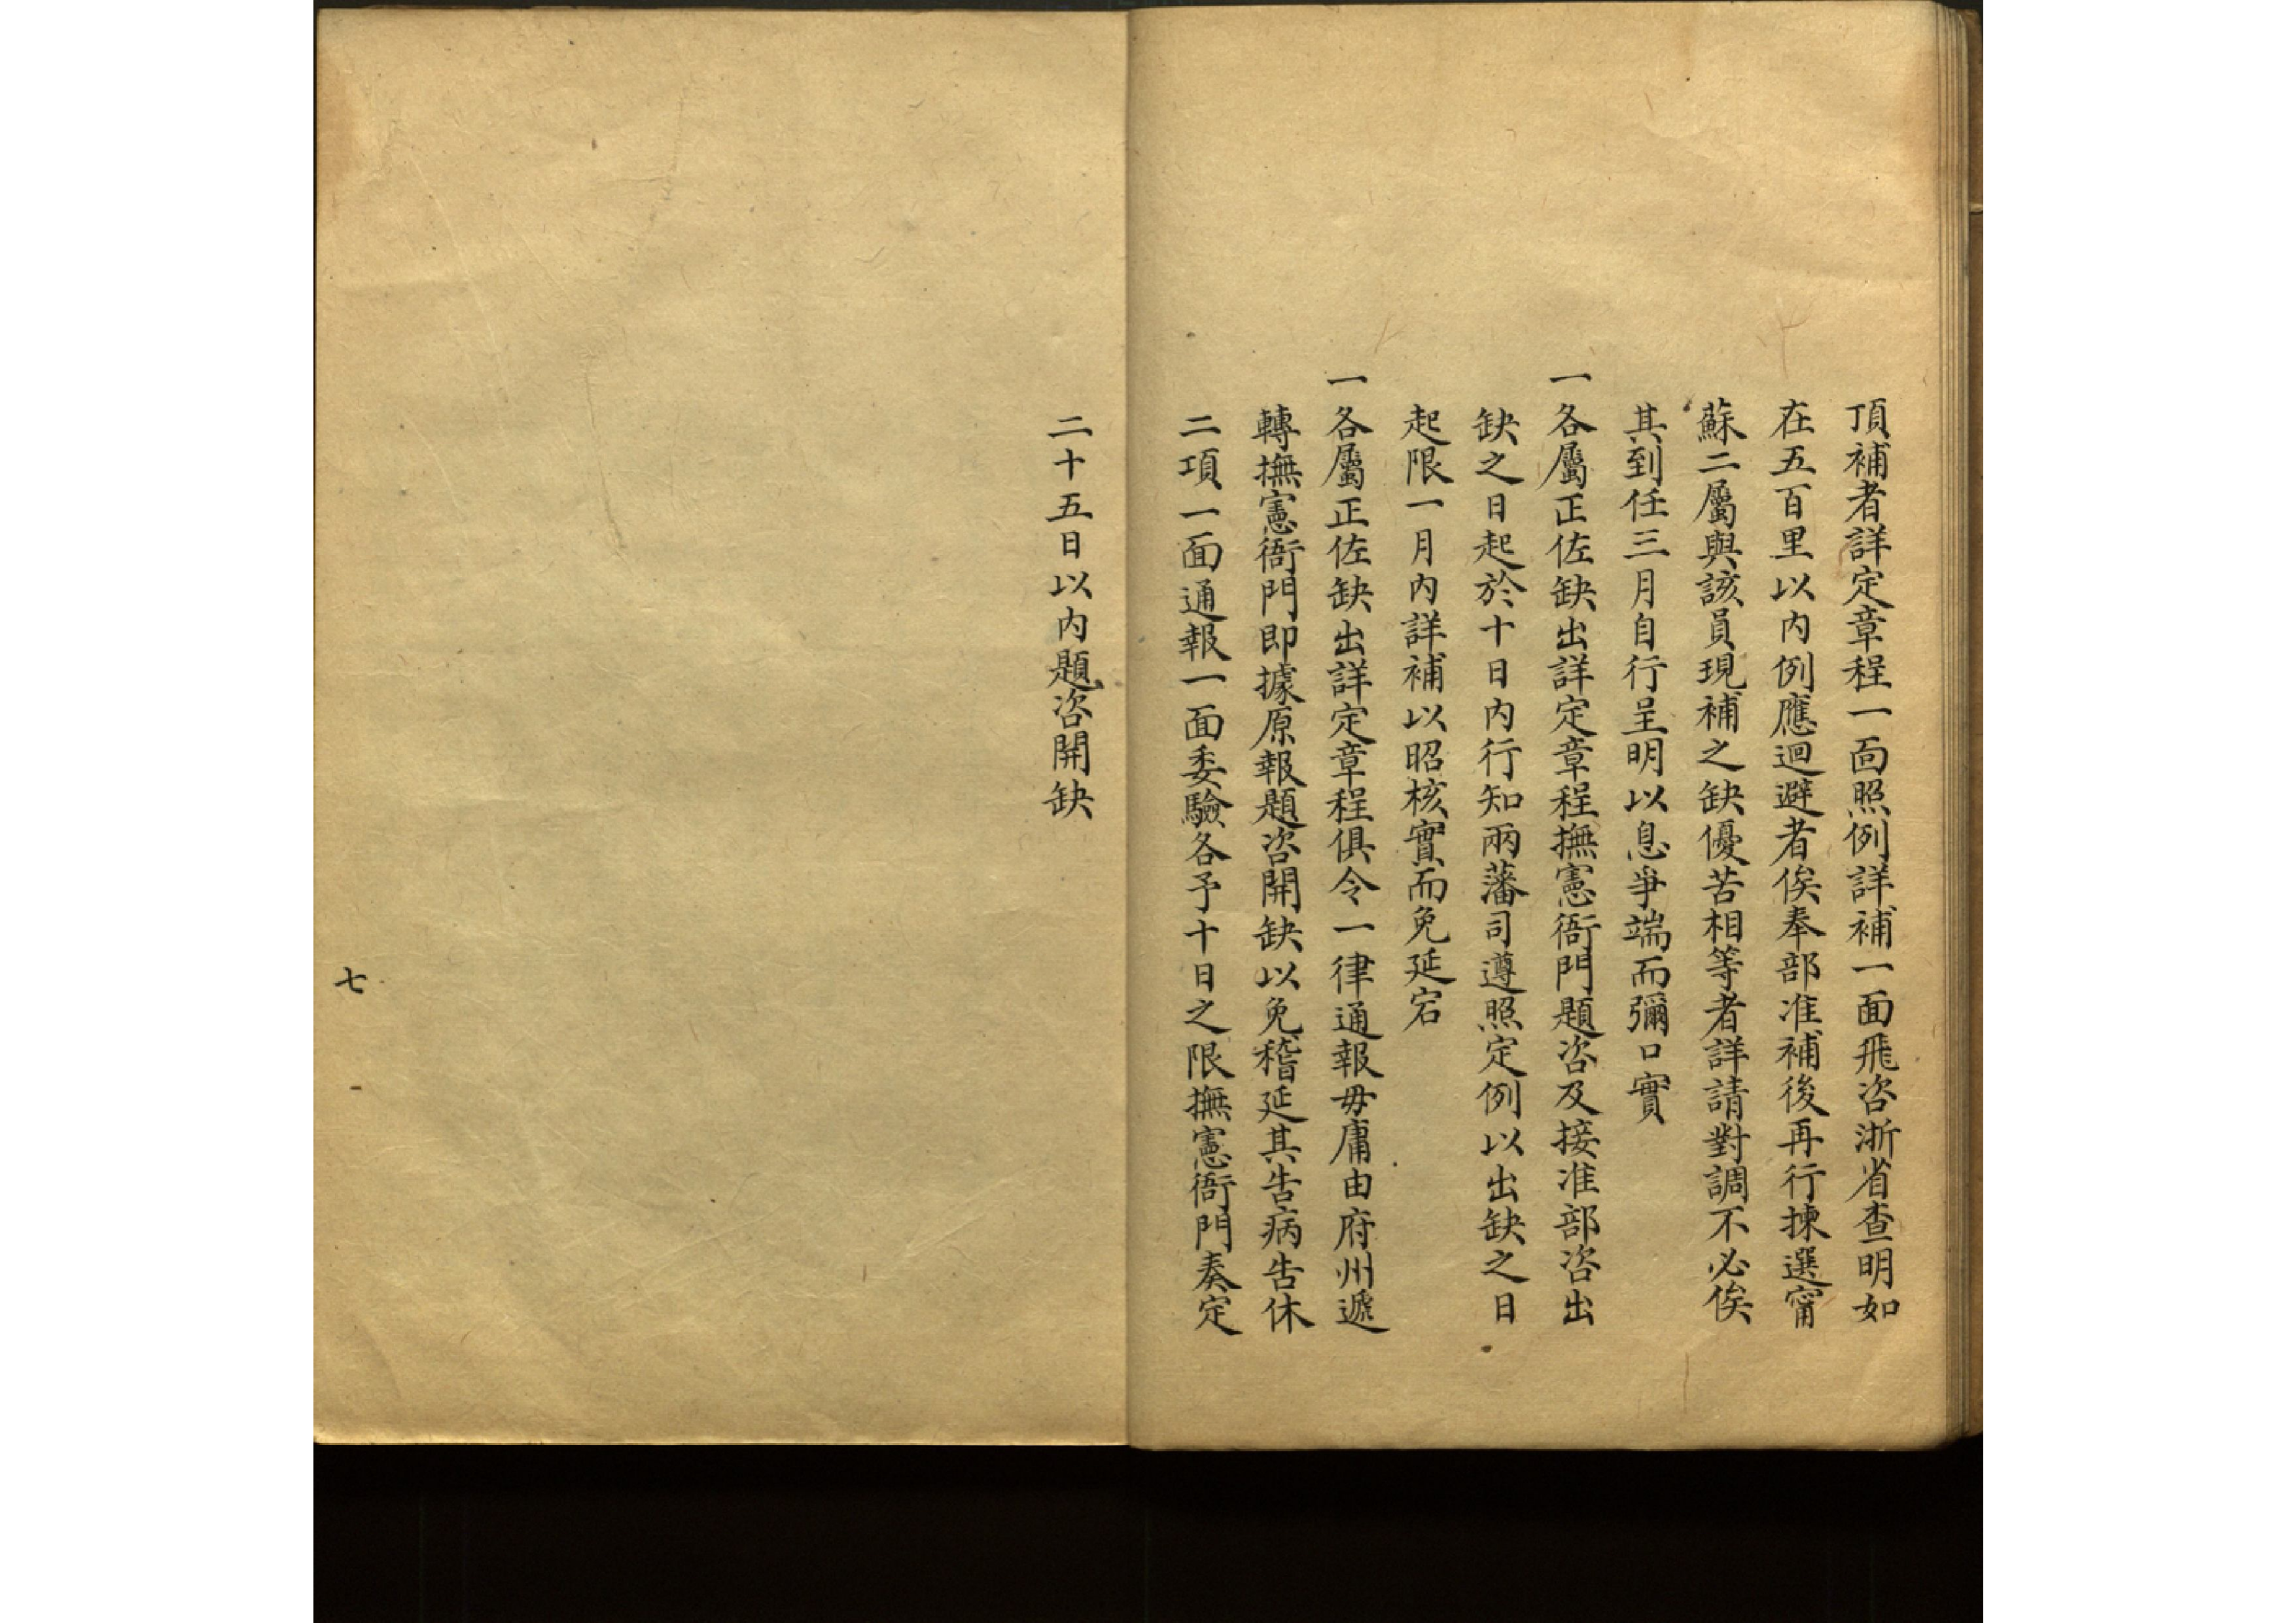 頂補者詳定章程一面照例詳補一面飛咨浙省查明如
在五百里以内例應迴避者俟奉部准補後再行揀選甯
蘇二屬與該員現補之缺優苦相等者詳請對調不必俟
其到任三月自行呈明以息爭端而彌口實
一各屬正佐缺出詳定章程撫憲衙門題咨及接准部咨出
缺之日起於十日内行知兩藩司遵照定例以出缺之日
起限一月内詳補以昭核實而免延宕
一各屬正佐缺出詳定章程俱令一律通報毋庸由府州遞
轉撫憲衙門即據原報題咨開缺以免稽延其告病告休
二項一面通報一面委驗各予十日之限撫憲衙門奏定
二十五日以内題咨開缺
七